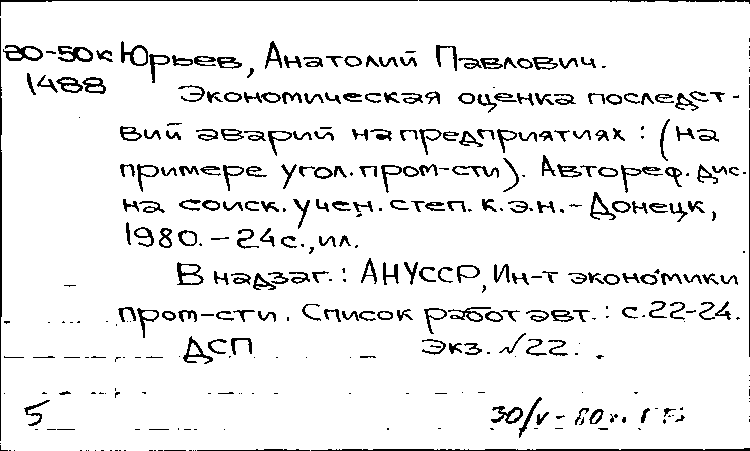 80-50к Юрьев, Анатолий Павлович.
1488
Экономическая оценка последст-
вий аварий на предприятиях : (на
примере угол. пром-сти). Автореф. дис.
на соиск. учен. степ. к.э.н. - Донецк,
1980. - 24с., ил.
В надзаг.: АНУССР, Ин-т экономики
пром-сти. Список работ авт.: с.22-24.
ДСП Экз. №22.
5 30/V-80г.